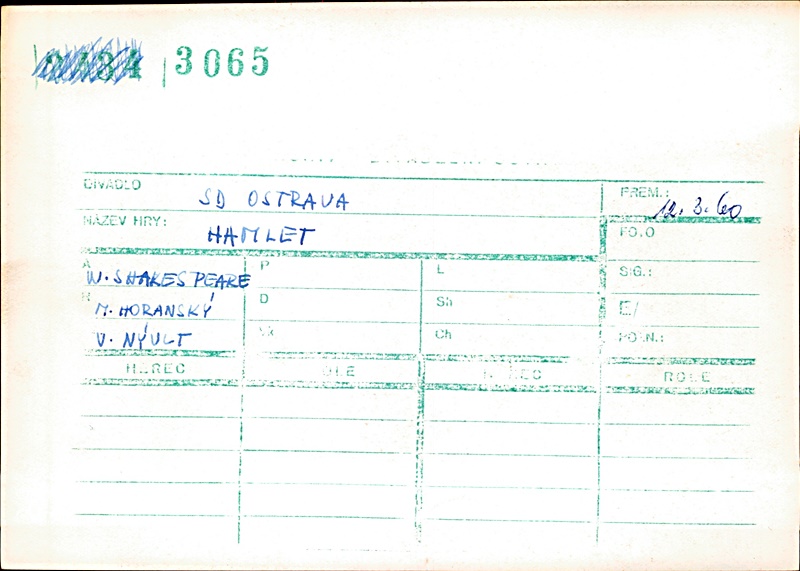 3065
DIVADLO SD OSTRAVA PREM.: 12.3.60
NÁZEV HRY: HAMLET
A W. SHAKESPEARE P L SIG.:
R M. HORANSKÝ D Sh E/
V. NÝVLT Ch POZN.:
HEREC ROLE HEREC ROLE